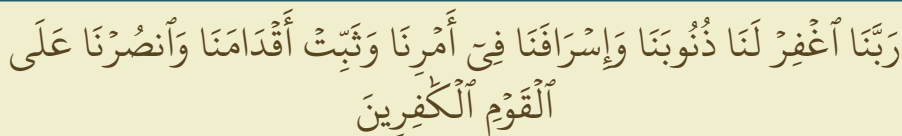 رَبَّنَا ٱغۡفِرۡ لَنَا ذُنُوبَنَا وَإِسۡرَافَنَا فِيٓ أَمۡرِنَا وَثَبِّتۡ أَقۡدَامَنَا وَٱنصُرۡنَا عَلَى
ٱلۡقَوۡمِ ٱلۡكَٰفِرِينَ